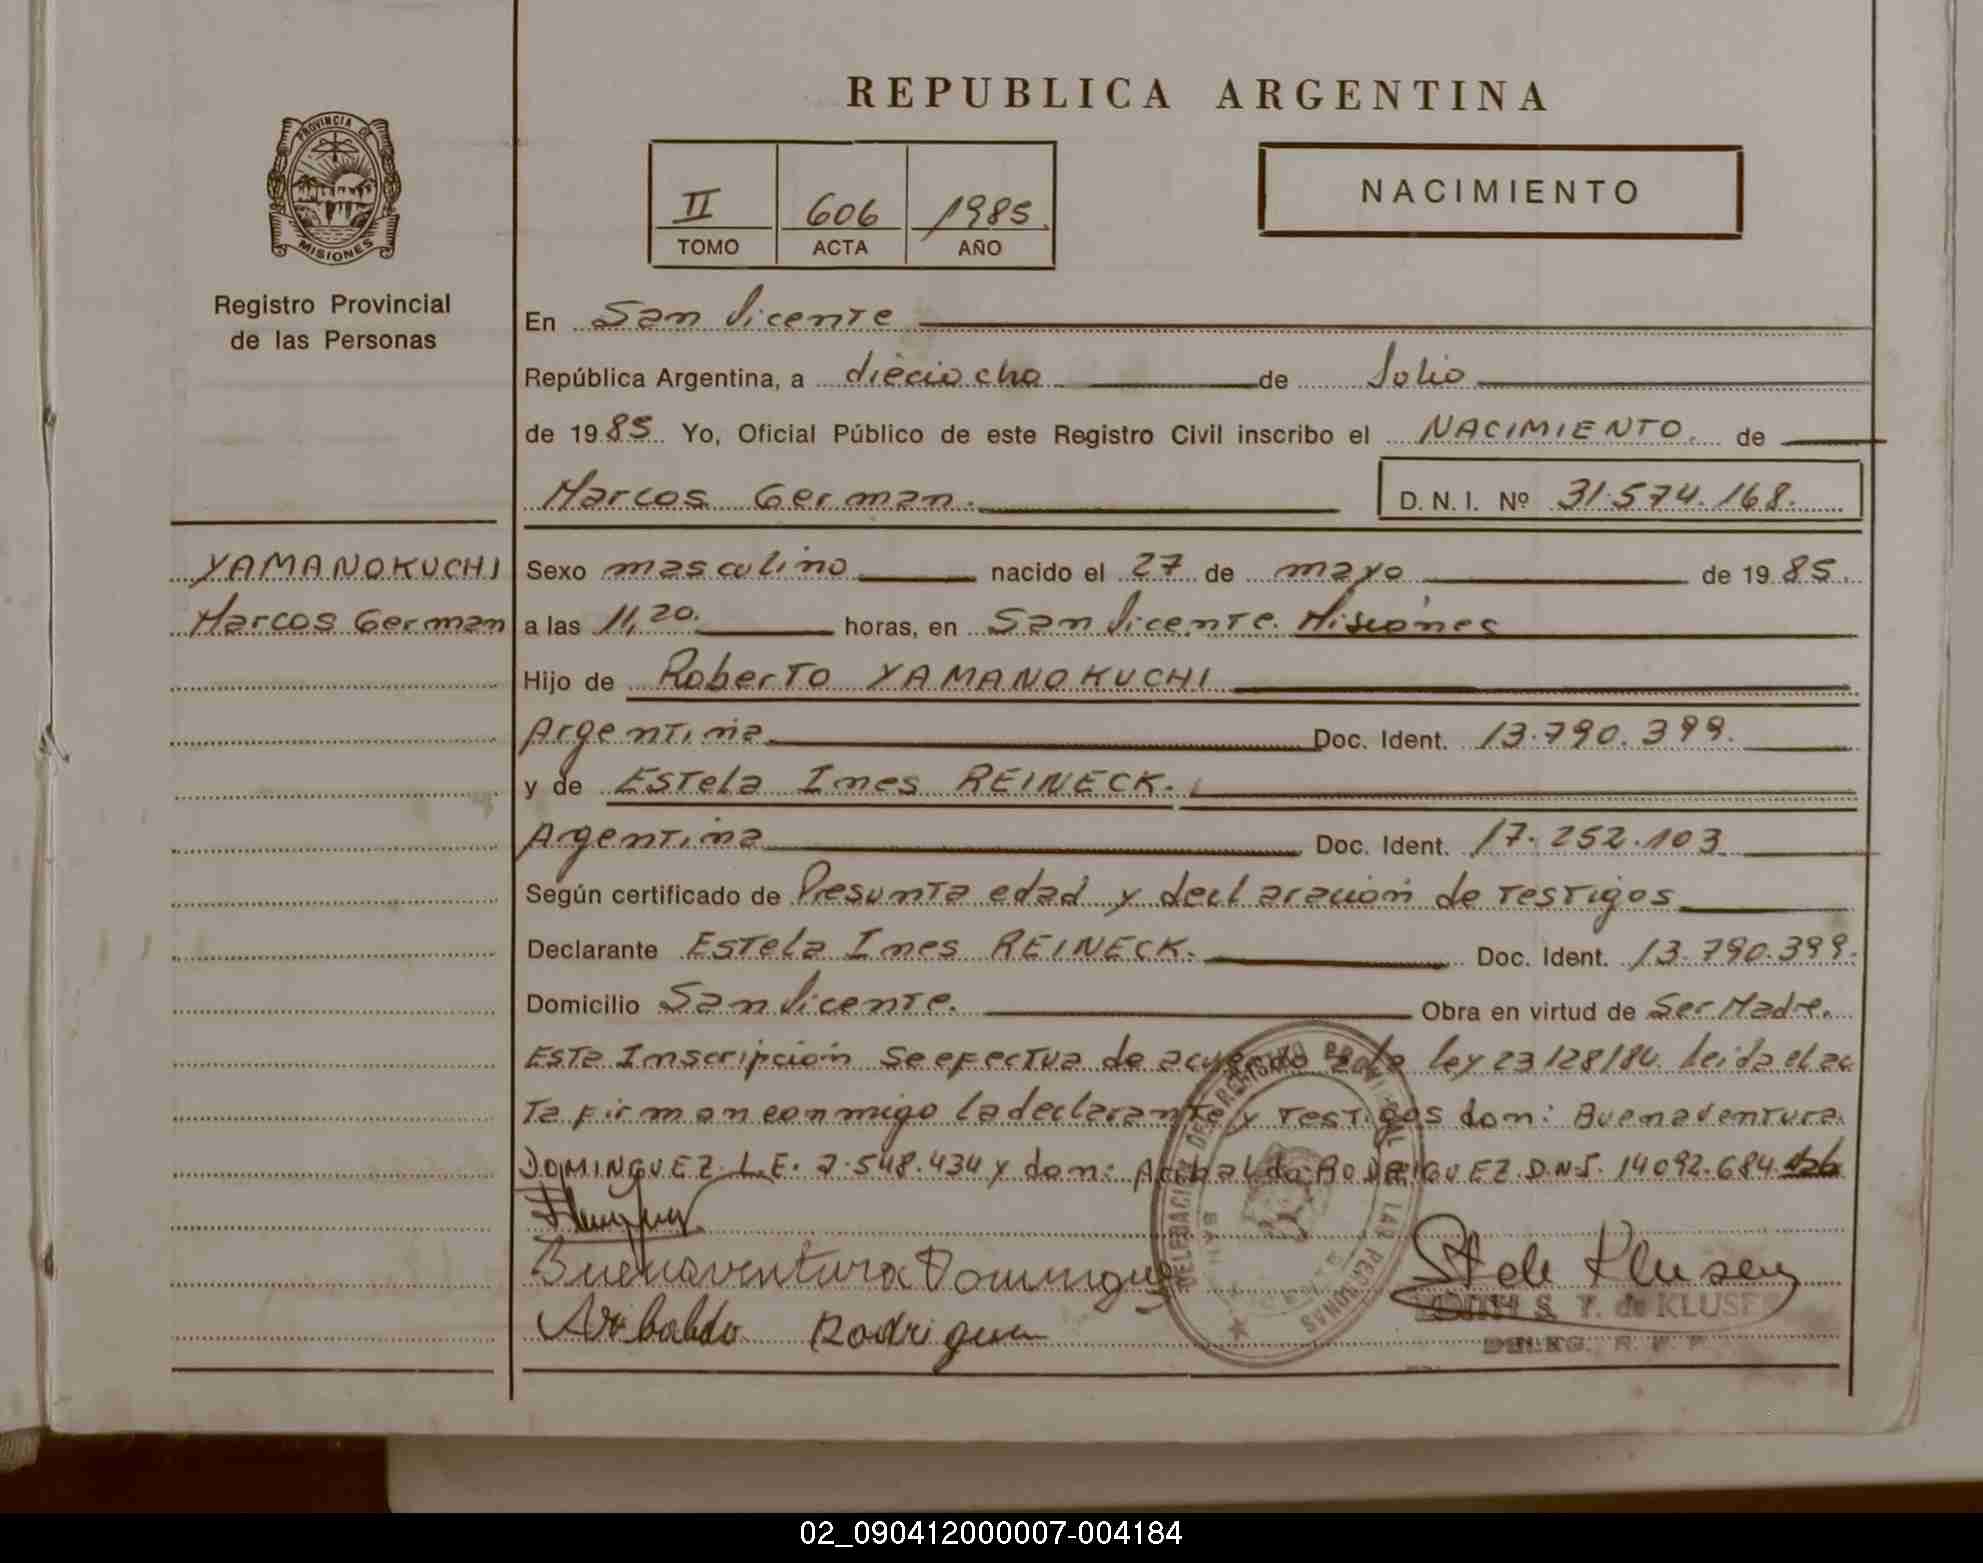 REPUBLICA ARGENTINA
PROVINCIA DE
MISIONES
Registro Provincial
de las Personas
II 606 1985.
TOMO ACTA AÑO
NACIMIENTO
En San Vicente
República Argentina, a dieciocho de Julio
de 1985. Yo, Oficial Público de este Registro Civil inscribo el NACIMIENTO. de
Marcos German. D. N. I. Nº 31.574.168.
YAMANOKUCHI
Marcos German
Sexo masculino nacido el 27 de mayo de 1985.
a las 11,20. horas, en San Vicente. Misiones
Hijo de Roberto YAMANOKUCHI
Argentina Doc. Ident. 13.790.399.
y de Estela Ines REINECK.
Argentina Doc. Ident. 17.252.103
Según certificado de Presunta edad y declaración de testigos
Declarante Estela Ines REINECK. Doc. Ident. 13.790.399.
Domicilio San Vicente. Obra en virtud de Ser Madre.
Esta Inscripción se efectua de acuerdo a la ley 23128/84. Leida el ac
ta firman conmigo la declarante y testigos don: Buenaventura
DOMINGUEZ L.E. 7.548.434 y don: Aribaldo RODRIGUEZ D.N.I. 14092.684
Buenaventura Dominguez
Aribaldo Rodriguez
St de Klusen
S. T. de KLUSE
DELEG. R. P. P.
DELEGACION DEL REGISTRO PROVINCIAL DE LAS PERSONAS
02_090412000007-004184